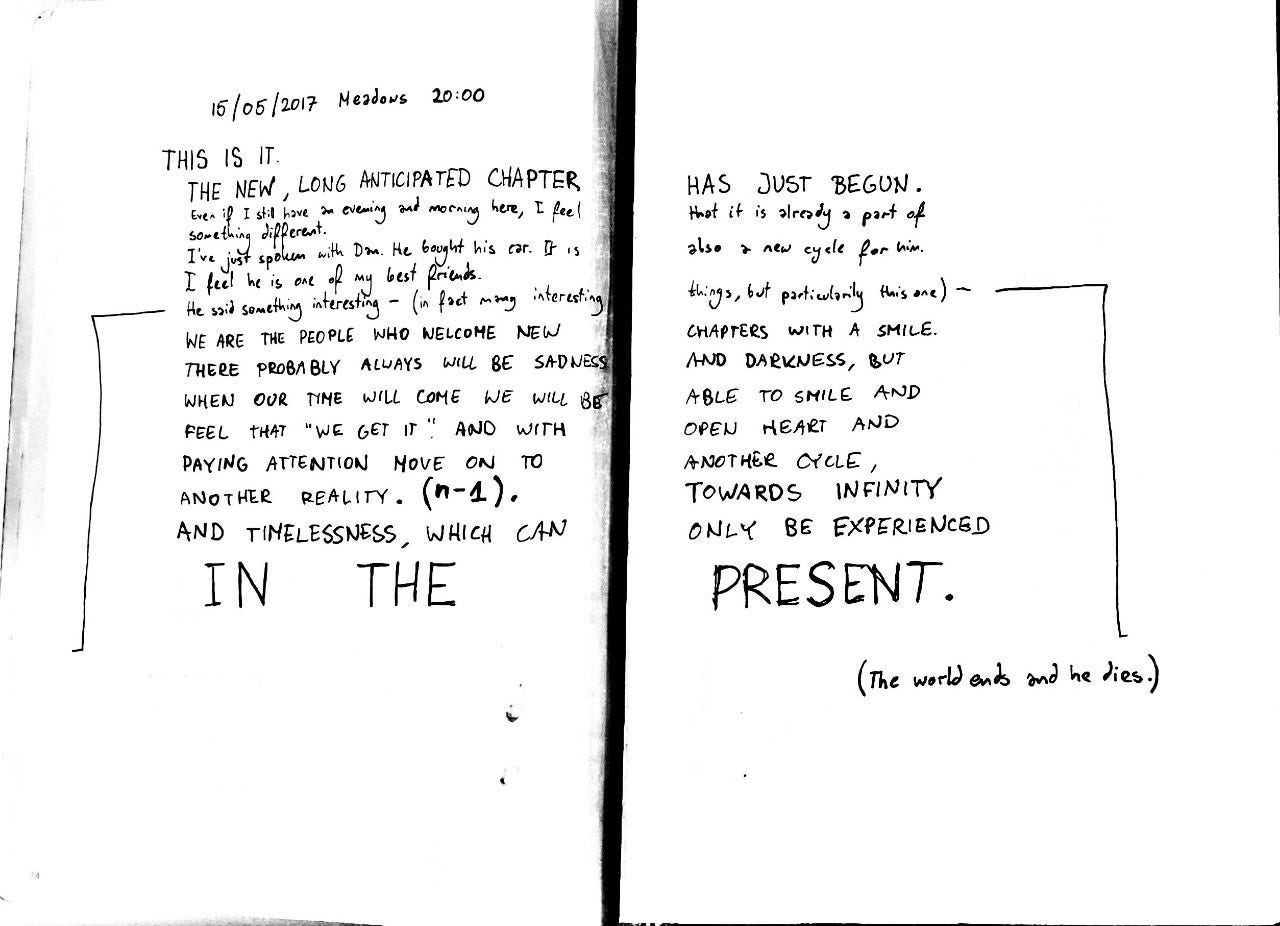 15/05/2017 Meadows 20:00
THIS IS IT.
THE NEW, LONG ANTICIPATED CHAPTER HAS JUST BEGUN.
Even if I still have an evening and morning here, I feel that it is already a part of
something different.
I've just spoken with Dan. He bought his car. It is also a new cycle for him.
I feel he is one of my best friends.
He said something interesting – (in fact many interesting things, but particularily this one) –
WE ARE THE PEOPLE WHO WELCOME NEW CHAPTERS WITH A SMILE.
THERE PROBABLY ALWAYS WILL BE SADNESS AND DARKNESS, BUT
WHEN OUR TIME WILL COME WE WILL BE ABLE TO SMILE AND
FEEL THAT "WE GET IT". AND WITH OPEN HEART AND
PAYING ATTENTION MOVE ON TO ANOTHER CYCLE,
ANOTHER REALITY. (n-1). TOWARDS INFINITY
AND TIMELESSNESS, WHICH CAN ONLY BE EXPERIENCED
IN THE PRESENT.
(The world ends and he dies.)